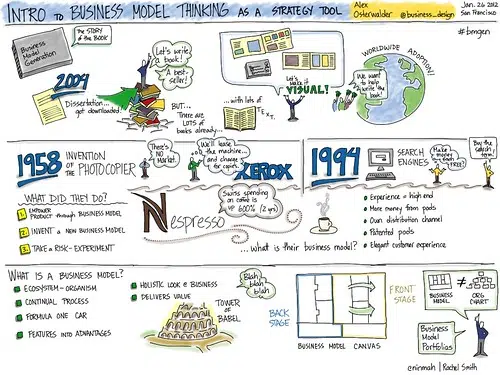 INTRO to BUSINESS MODEL THINKING AS A STRATEGY TOOL
Alex
Osterwalder @business_design
Jan. 26 2012
San Francisco
#bmgen
Business
Model
Generation
The STORY
of the BOOK!
2004
Dissertation...
get downloaded!
Let's write
a book!
A best-
seller!
BUT...
There are
LOTS of
books already...
Let's
make it
VISUAL!
...with lots of
TEXT.
WORLDWIDE ADOPTION!
We want
to help
write the
book!
1958
INVENTION
OF THE PHOTOCOPIER
There's
No
Market.
We'll lease
the machine...
and charge
for copies.
XEROX
1994
SEARCH
ENGINES
Make
money
from
FREE?
Buy the
search
term
WHAT DID THEY DO?
1. EMPOWER
PRODUCT through BUSINESS MODEL
2. INVENT a NEW BUSINESS MODEL
3. TAKE A RISK - EXPERIMENT
Nespresso
Swiss spending
on coffee is
up 600% (2 yrs)
...what is their business model?
Experience = high end
More money from pods
Own distribution channel
Patented pods
Elegant customer experience
WHAT IS A BUSINESS MODEL?
ECOSYSTEM - ORGANISM
CONTINUAL PROCESS
FORMULA ONE CAR
FEATURES INTO ADVANTAGES
HOLISTIC LOOK @ BUSINESS
DELIVERS VALUE
Blah
blah
blah
TOWER
OF
BABEL
BACK
STAGE
FRONT
STAGE
BUSINESS MODEL CANVAS
BUSINESS
MODEL
≠
ORG
CHART
Business
Model
Portfolios
@ninmah | Rachel Smith